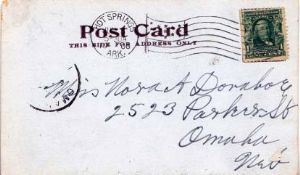 HOT SPRINGS
ARK.
Post Card
THIS SIDE FOR ADDRESS ONLY
Miss Nora A Donahoe
2523 Parker St
Omaha
Nev